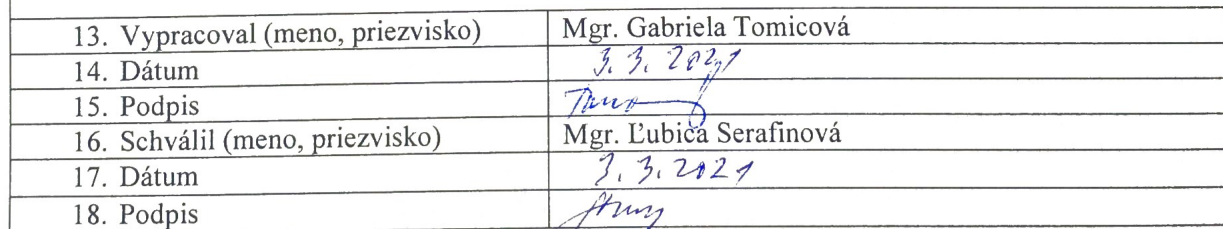 13. Vypracoval (meno, priezvisko) Mgr. Gabriela Tomicová
14. Dátum 3. 3. 2021
15. Podpis
16. Schválil (meno, priezvisko) Mgr. Ľubica Serafinová
17. Dátum 3. 3. 2021
18. Podpis